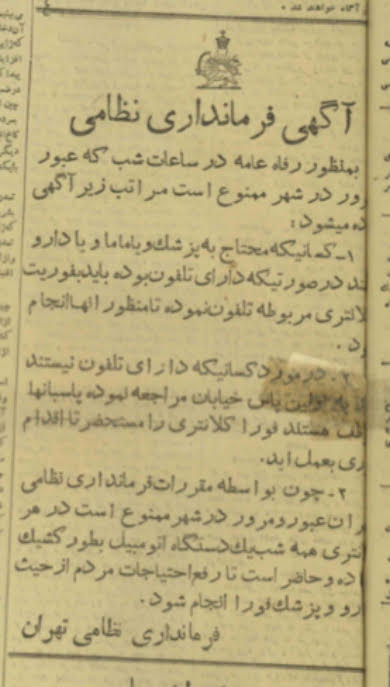 آگاه خواهند شد.
آگهی فرمانداری نظامی
بمنظور رفاه عامه در ساعات شب که عبور
رور در شهر ممنوع است مراتب زیر آگهی
ده میشود:
۱-کسانیکه محتاج به پزشک و یا ماما و یا دارو
ند در صورتیکه دارای تلفون بوده باید بفوریت
لانتری مربوطه تلفون نموده تا منظور آنها انجام
رد.
۲- در مورد کسانیکه دارای تلفون نیستند
به اولین پاس خیابان مراجعه نموده پاسبانها
ظف هستند فورا کلانتری را مستحضر تا اقدام
ری بعمل اید.
۲- چون بواسطه مقررات فرمانداری نظامی
ران عبور و مرور در شهر ممنوع است در هر
نتری همه شب یک دستگاه اتومبیل بطور کشیک
اده و حاضر است تا رفع احتیاجات مردم از حیث
رو و پزشک فورا انجام شود.
فرمانداری نظامی تهران